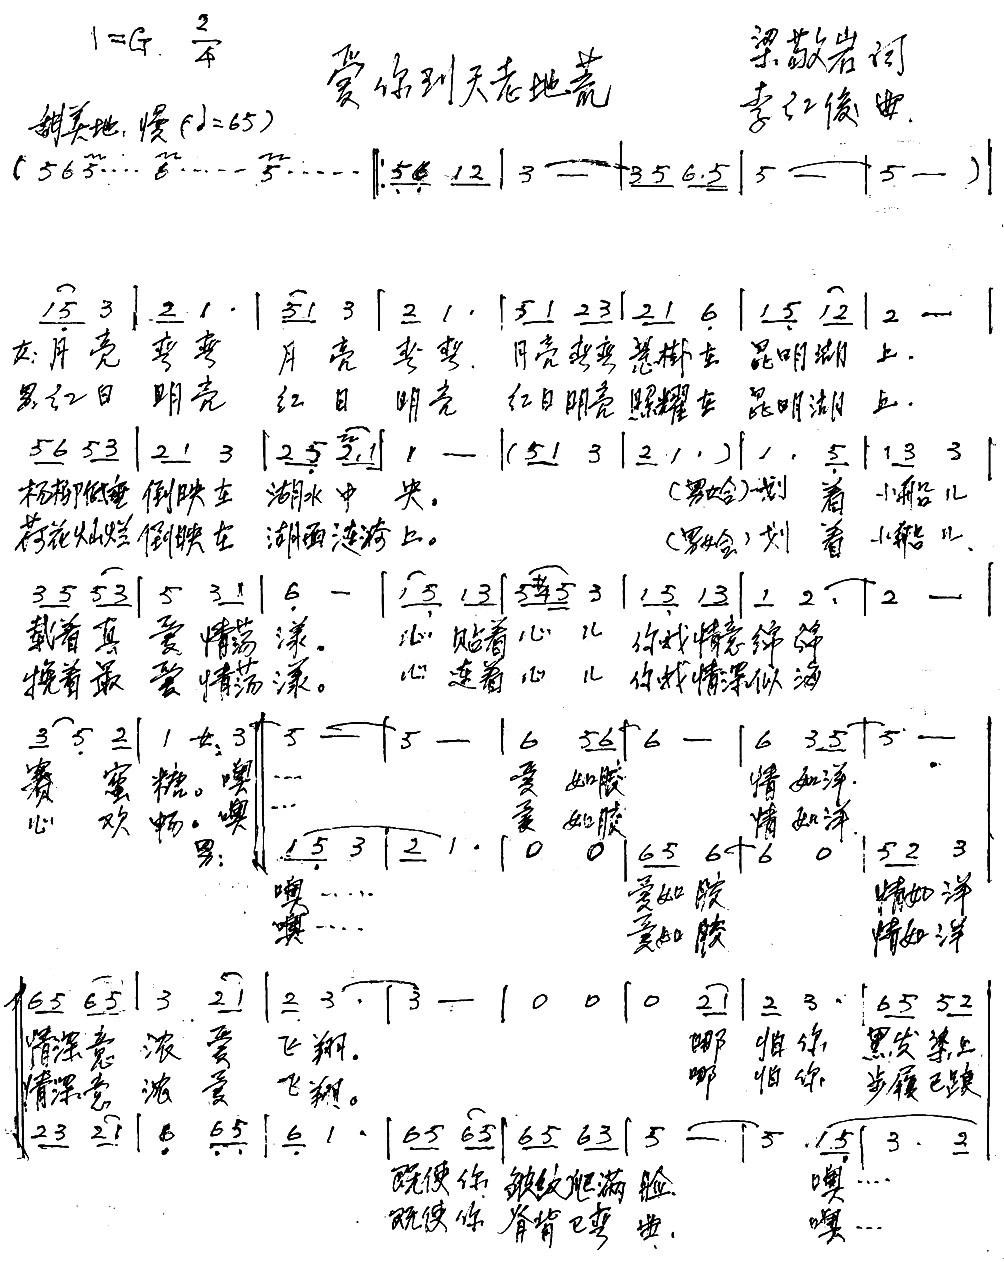 1=G 2/4
爱你到天老地荒
梁敬岩词
李红俊曲.
甜美地.慢(♩=65)
(565····6·····5······‖:56 12|3 —|35 6.5|5 —|5 —)|
15 3|2 1·|51 3|2 1·|51 23|21 6|15 12|2 —|
女:月亮弯弯 月亮弯弯.月亮弯弯悬掛在昆明湖上.
男:红日明亮 红日明亮 红日明亮照耀在昆明湖上.
56 53|21 3|25 2.1|1 —|(51 3|21·)|1·5|13 3|
杨柳低垂倒映在湖水中央。(男女合)划着小船儿
荷花灿烂倒映在湖面涟漪上。(男女合)划着小船儿.
35 53|5 31|6 —|15 13|5#45 3|15 13|1 2·|2 —|
载着真爱情荡漾。心贴着心儿你我情意绵绵
挽着最爱情荡漾。心连着心儿你我情深似海
3 5 2|1 女:3‖5 —|5 —|6 56|6 —|6 35|5 —|
赛蜜糖。噢···· 爱如胶 情如洋.
心欢畅。噢··· 爱如胶 情如洋.
男:15 3|2 1·|0 0|65 6|6 0|52 3|
噢···· 爱如胶 情如洋
噢···· 爱如胶 情如洋
65 65|3 21|2 3·|3 —|0 0|0 21|2 3·|65 52|
情深意浓爱飞翔。 哪怕你黑发染上
情深意浓爱飞翔。 哪怕你步履已踉
23 21|6 65|6 1·|65 65|65 63|5 —|5 ·15|3·2|
既使你皱纹爬满脸. 噢····
既使你脊背已弯曲. 噢···